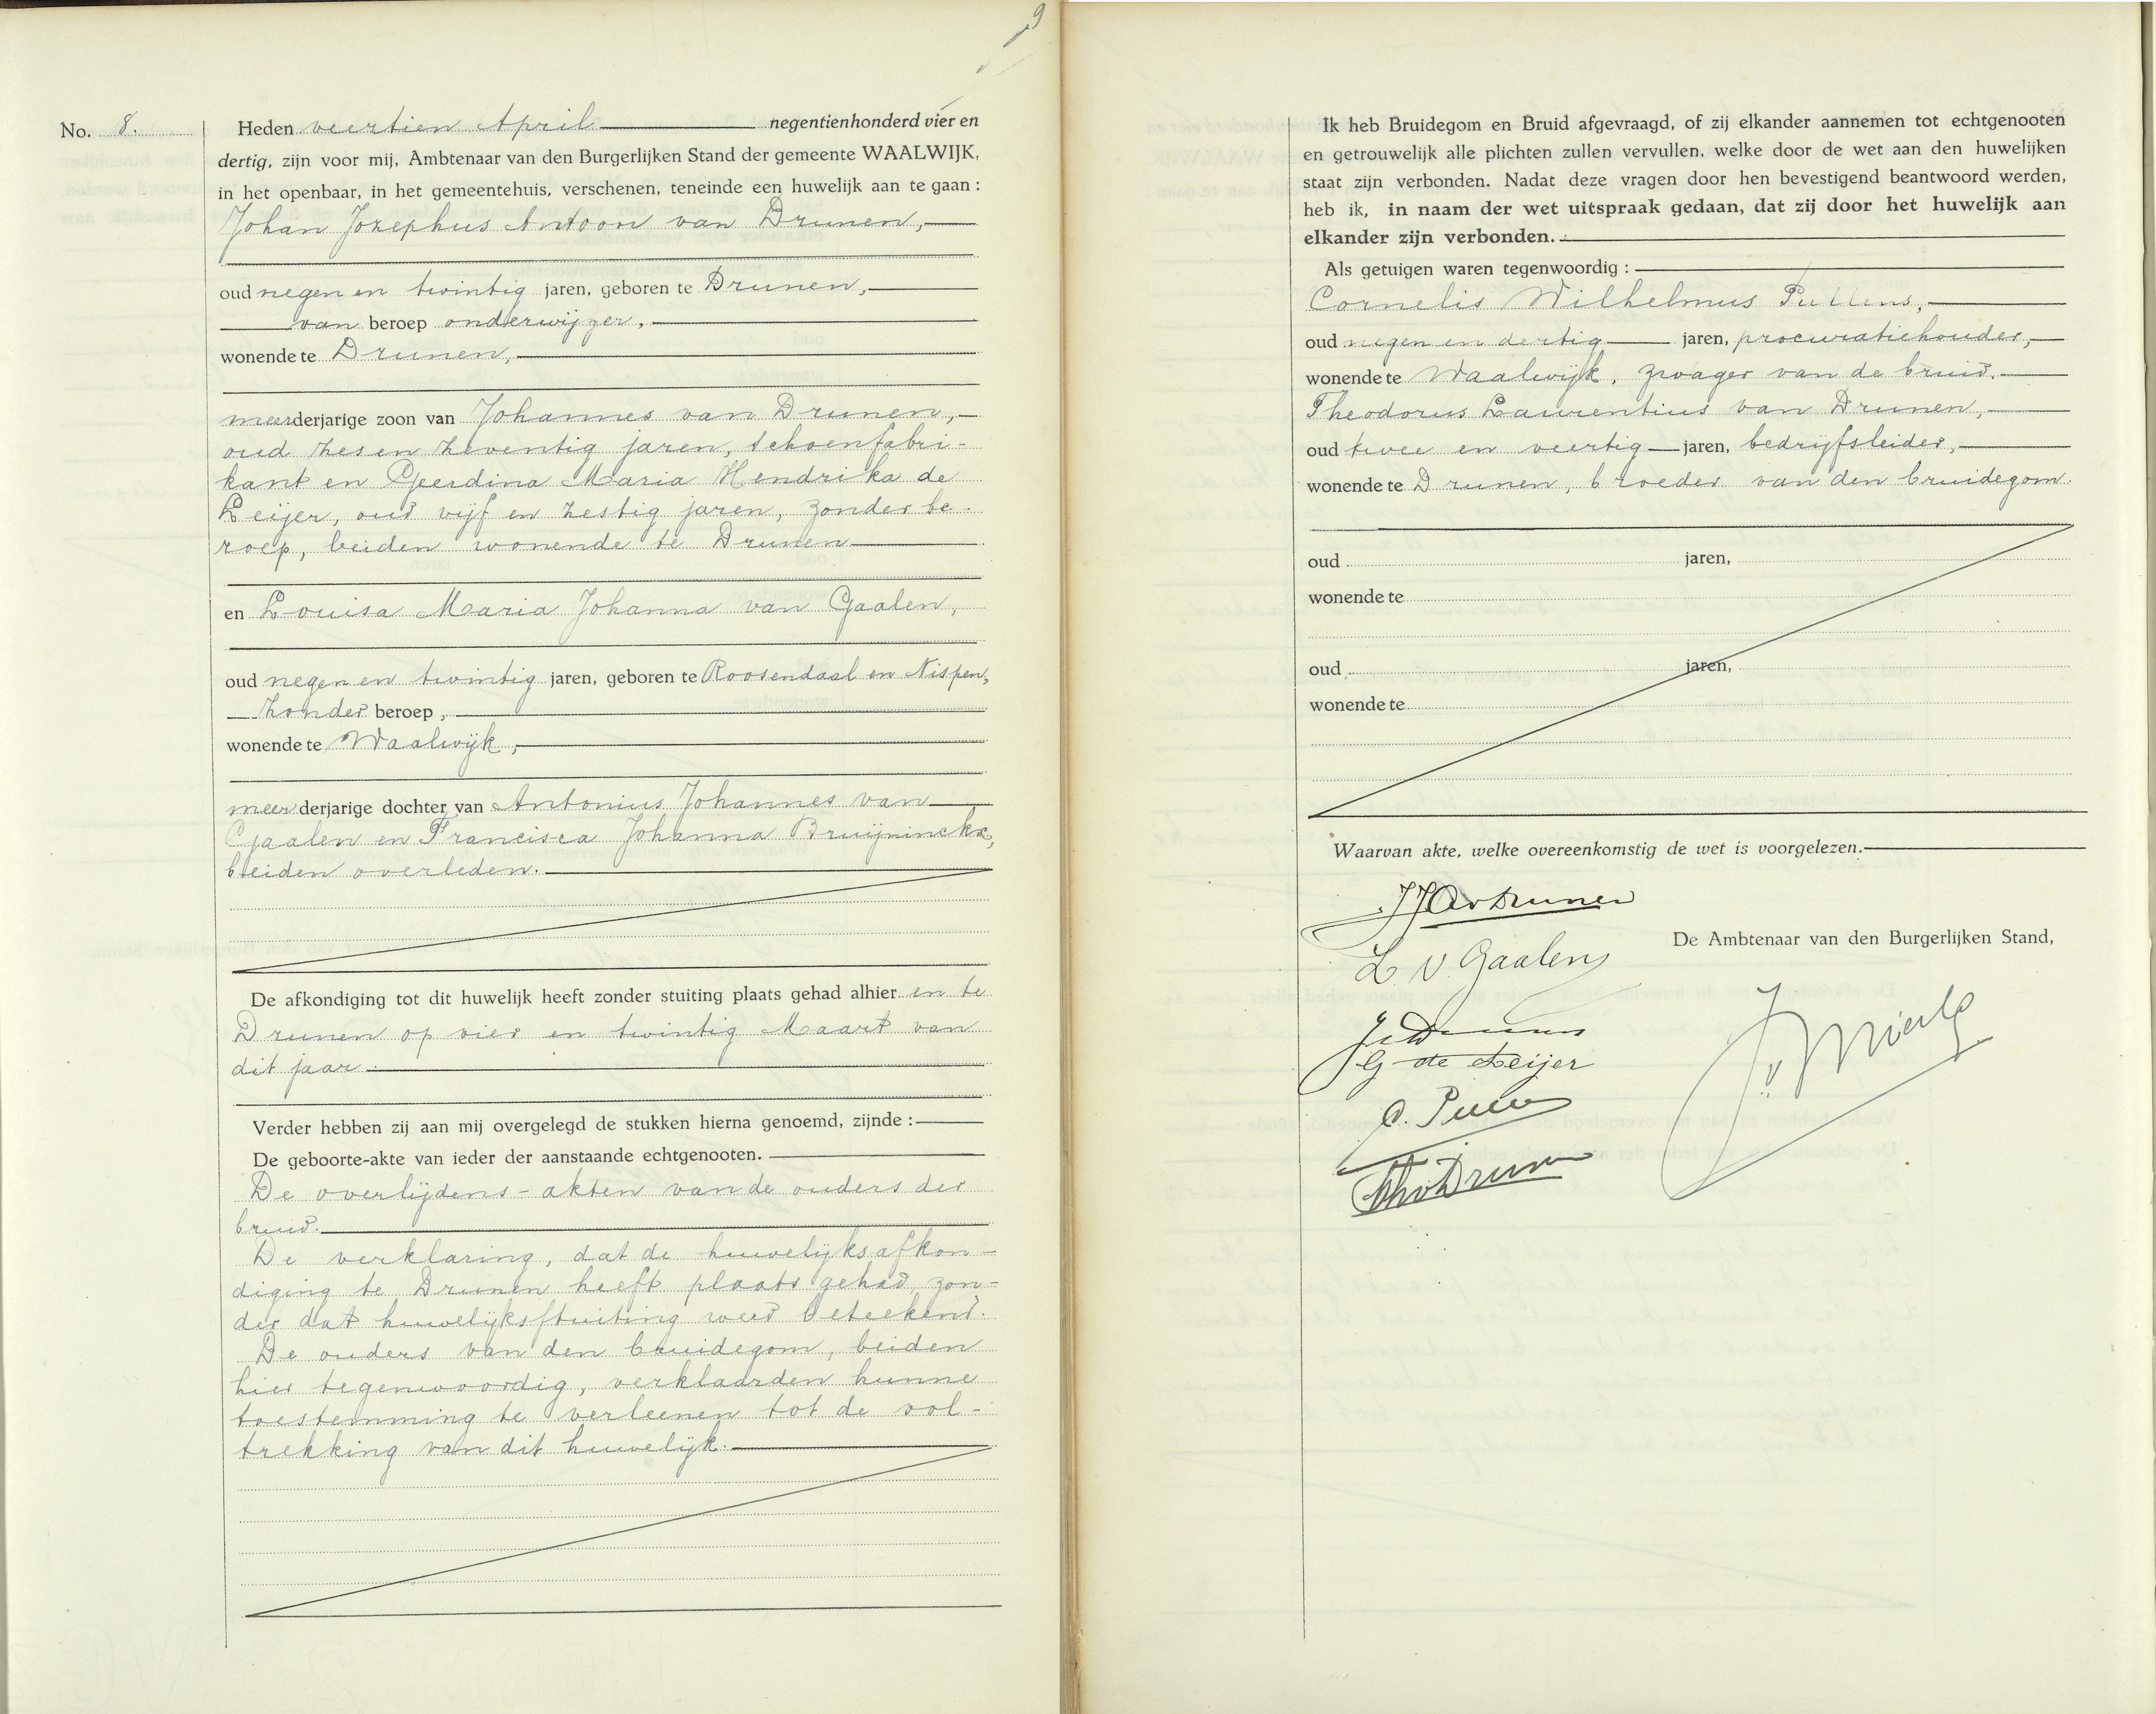 9
No. 8.
Heden veertien April negentienhonderd vier en
dertig, zijn voor mij, Ambtenaar van den Burgerlijken Stand der gemeente WAALWIJK,
in het openbaar, in het gemeentehuis, verschenen, teneinde een huwelijk aan te gaan :
Johan Josephus Antoon van Drunen,
oud negen en twintig jaren, geboren te Drunen,
van beroep onderwijzer,
wonende te Drunen,
meerderjarige zoon van Johannes van Drunen,
oud zes en zeventig jaren, schoenfabri-
kant en Geerdina Maria Hendrika de
Leijer, oud vijf en zestig jaren, zonder be-
roep, beiden wonende te Drunen
en Louisa Maria Johanna van Gaalen,
oud negen en twintig jaren, geboren te Roosendaal en Nispen,
zonder beroep,
wonende te Waalwijk,
meerderjarige dochter van Antonius Johannes van
Gaalen en Francisca Johanna Bruijninckx,
beiden overleden.
De afkondiging tot dit huwelijk heeft zonder stuiting plaats gehad alhier en te
Drunen op vier en twintig Maart van
dit jaar.
Verder hebben zij aan mij overgelegd de stukken hierna genoemd, zijnde :
De geboorte-akte van ieder der aanstaande echtgenooten.
De overlijdens-akten van de ouders der
bruid.
De verklaring, dat de huwelijksafkon-
diging te Drunen heeft plaats gehad, zon-
der dat huwelijksstuiting werd beteekend.
De ouders van den bruidegom, beiden
hier tegenwoordig, verklaarden hunne
toestemming te verleenen tot de vol-
trekking van dit huwelijk.
Ik heb Bruidegom en Bruid afgevraagd, of zij elkander aannemen tot echtgenooten
en getrouwelijk alle plichten zullen vervullen, welke door de wet aan den huwelijken
staat zijn verbonden. Nadat deze vragen door hen bevestigend beantwoord werden,
heb ik, in naam der wet uitspraak gedaan, dat zij door het huwelijk aan
elkander zijn verbonden.
Als getuigen waren tegenwoordig :
Cornelis Wilhelmus Pullens,
oud negen en dertig jaren, procuratiehouder,
wonende te Waalwijk, zwager van de bruid.
Theodorus Laurentius van Drunen,
oud twee en veertig jaren, bedrijfsleider,
wonende te Drunen, broeder van den bruidegom.
oud jaren,
wonende te
oud jaren,
wonende te
Waarvan akte, welke overeenkomstig de wet is voorgelezen.
JJAvDrunen
De Ambtenaar van den Burgerlijken Stand,
L v Gaalen
G de Leijer
C. Pullens
ThvDrunen